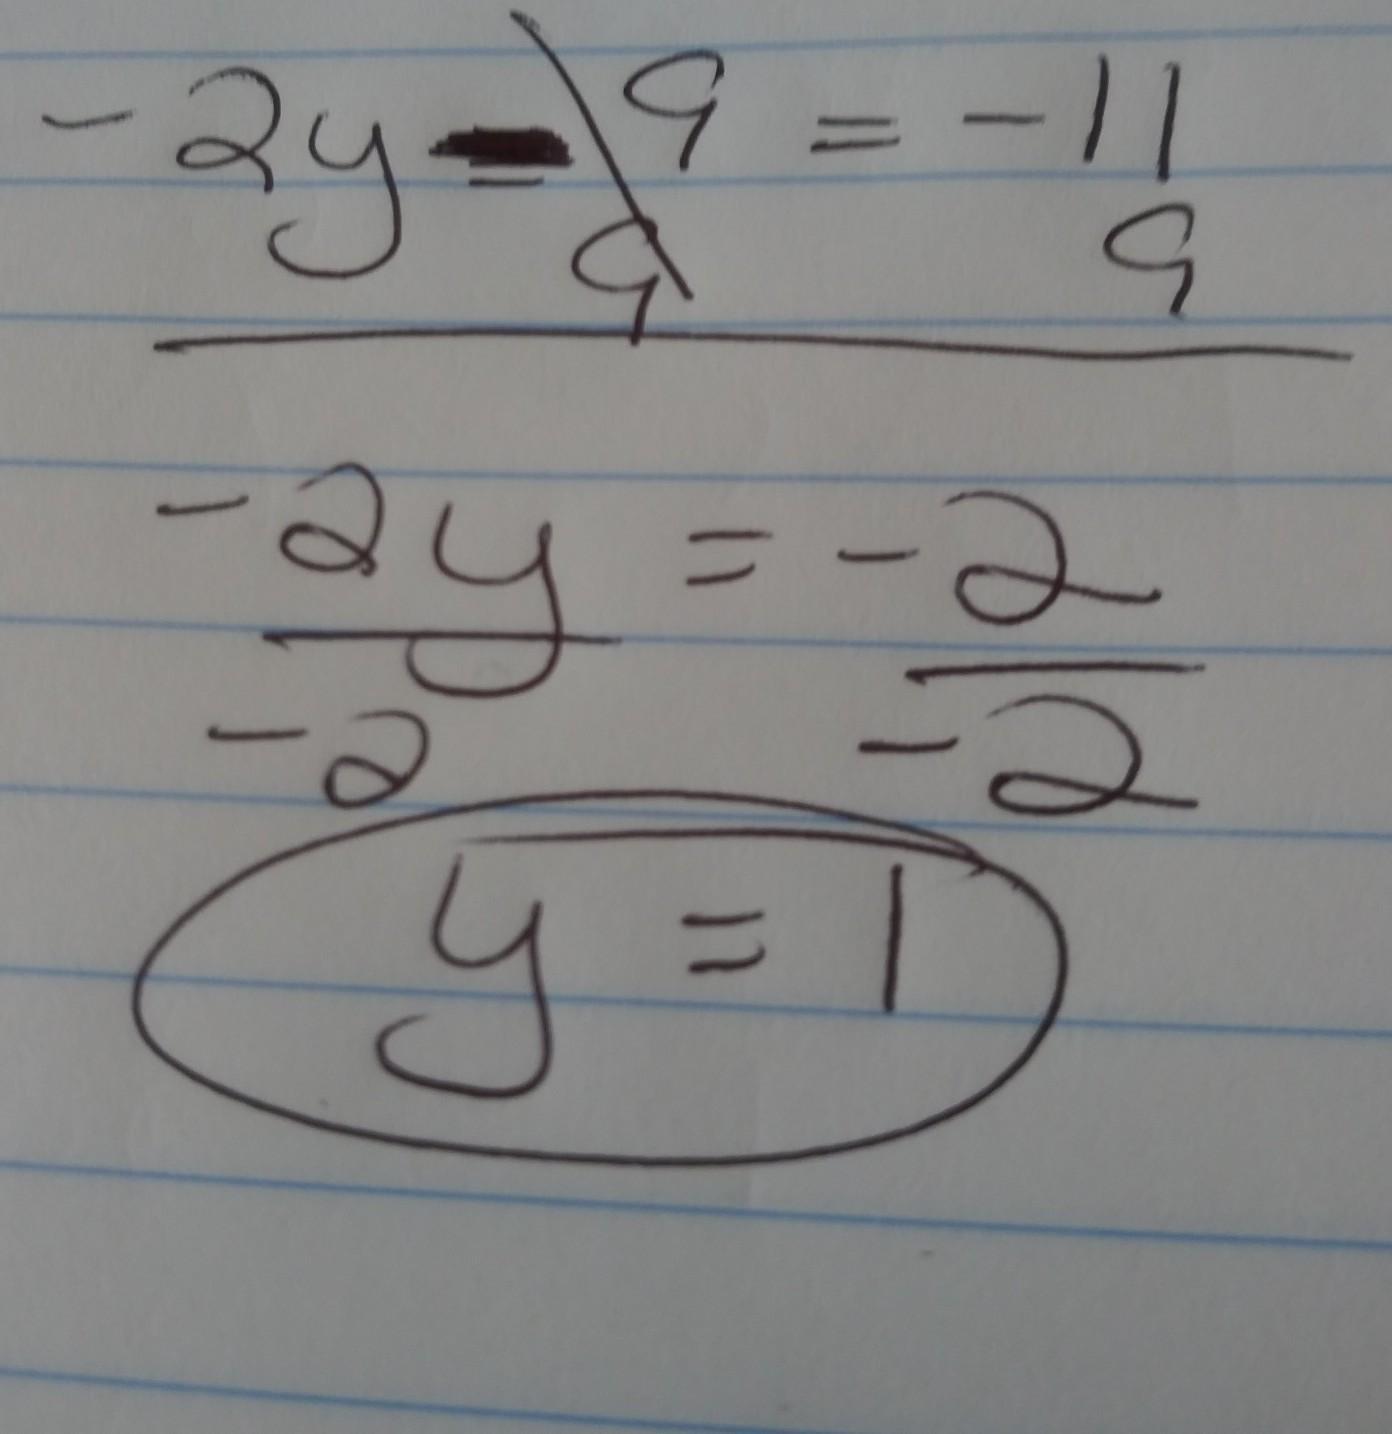 -2y - 9 = -11
9 9
-2y = -2
-2 -2
y = 1